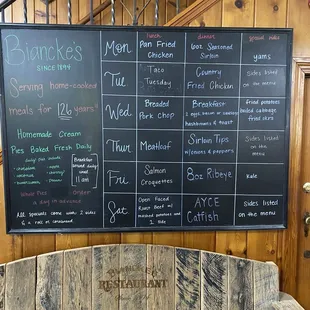 lunch
dinner
Special sides
Biancke's
SINCE 1894
Serving home-cooked
meals for 126 years
Homemade Cream
Pies Baked Fresh Daily
Daily pies include
Breakfast
served
until
11 am
Whole Pies
order
All specials come w/ 2 sides
& a roll or cornbread
Mon
Pan Fried
Chicken
6oz. Seasoned
Sirloin
yams
Tue
Taco
Tuesday
Country
Fried Chicken
Sides listed
on the menu
Wed
Breaded
Pork chop
Breakfast
2 eggs, bacon or sausage
hashbrowns & toast
fried potatoes
boiled cabbage
Thur
Meatloaf
Sirloin Tips
w/onions & peppers
Sides listed
on the menu
Fri
Salmon
Croquettes
8oz Ribeye
Kale
Sat
Open Faced
Roast Beef w/
mashed potatoes
& 1 side
AYCE
Catfish
Sides listed
on the menu
RESTAURANT